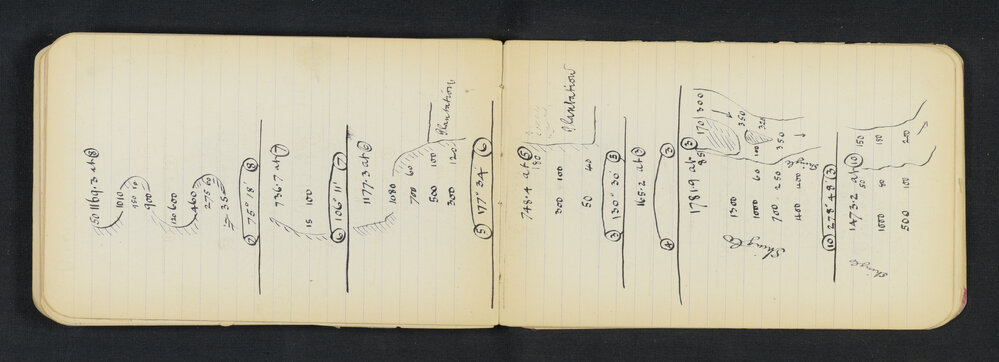 50 1169.3 at 8
1010
150 10
900
120 600
460
275 60
35
7 75° 18' 8
736.7 at 7
15 100
6 106° 11' 7
1177.3 at 6
1080
700 60
500 100 Plantation
300 120
5 177° 34' 6
748.4 at 5
180
300 100 Plantation
50 40
3 130° 30' 5
165.2 at 3
4 3
1781.9 at 3
85 170 300
1300 350
Shingle 1000 60 100 320
700 250 350
400 400 Shingle
10 278° 48' 3
1473.2 at 10
50 150
Shingle 1000 90 150
500 100 200